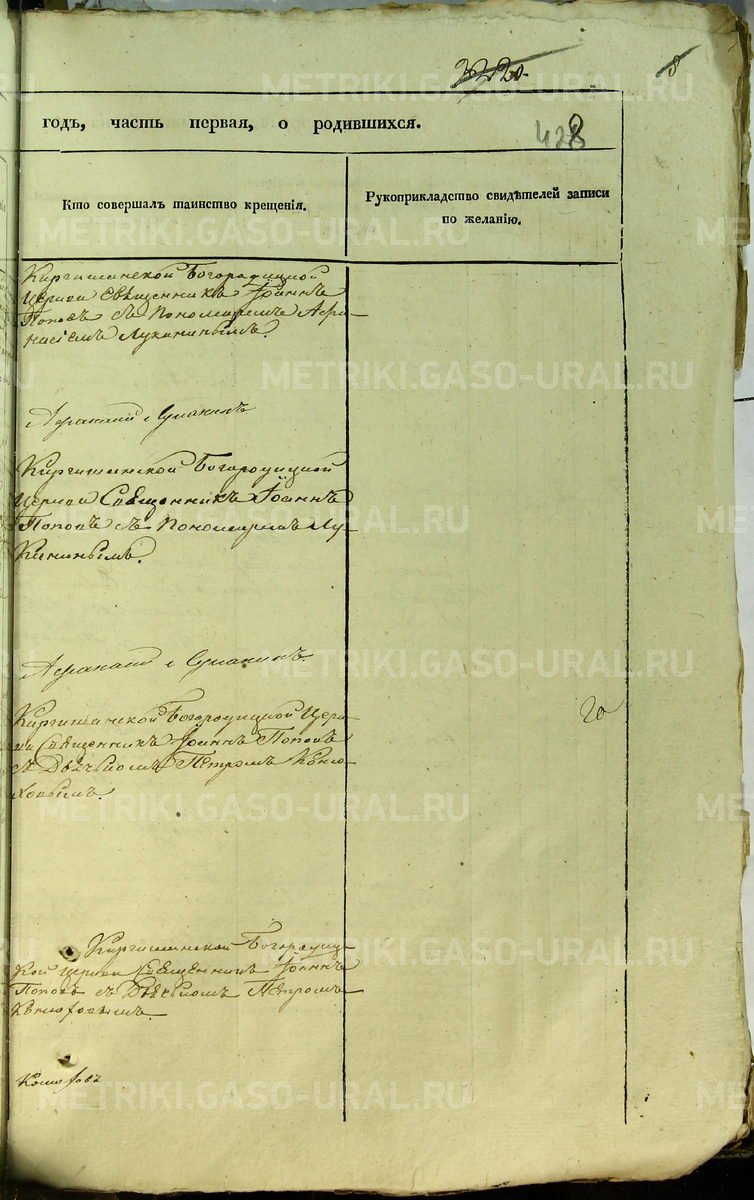 220.
8
годъ, часть первая, о родившихся.
428
Кто совершалъ таинство крещенія.
Рукоприкладство свидѣтелей записи
по желанію.
Киргишанской Богородицкой
церкви священникъ Іоаннъ
Поповъ съ Пономаремъ Афа-
насіемъ Лукинынымъ.
Киргишанской Богородицкой
церкви Священникъ Іоаннъ
Поповъ съ Пономаремъ Лу-
Киргишанской Богородицкой Церк-
ви Священникъ Іоаннъ Поповъ
съ Дьячкомъ Петромъ Коню-
ховымъ.
20
Киргишанской Богородиц-
кой церкви Священникъ Іоаннъ
Поповъ съ Дьячкомъ Петромъ
METRIKI.GASO-URAL.RU